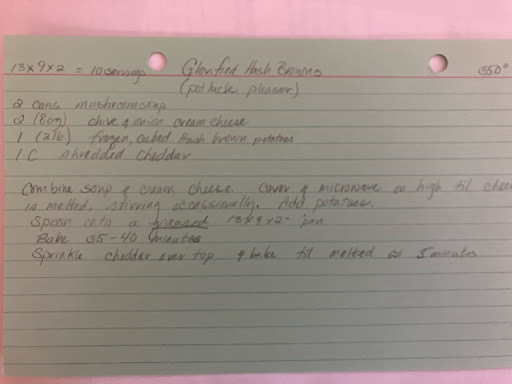 13x9x2 = 10 servings Glorified Hash Browns 350°
(potluck pleaser)
2 cans mushroom soup
2 (8oz) chive & onion cream cheese
1 (2lb) frozen, cubed Hash brown potatoes
1 C shredded cheddar
Combine soup & cream cheese. Cover & microwave on high til chees
is melted, stirring occassionally. Add potatoes.
Spoon into a greased 13x9x2" pan
Bake 35-40 minutes
Sprinkle cheddar over top & bake til melted ≈ 5 minutes